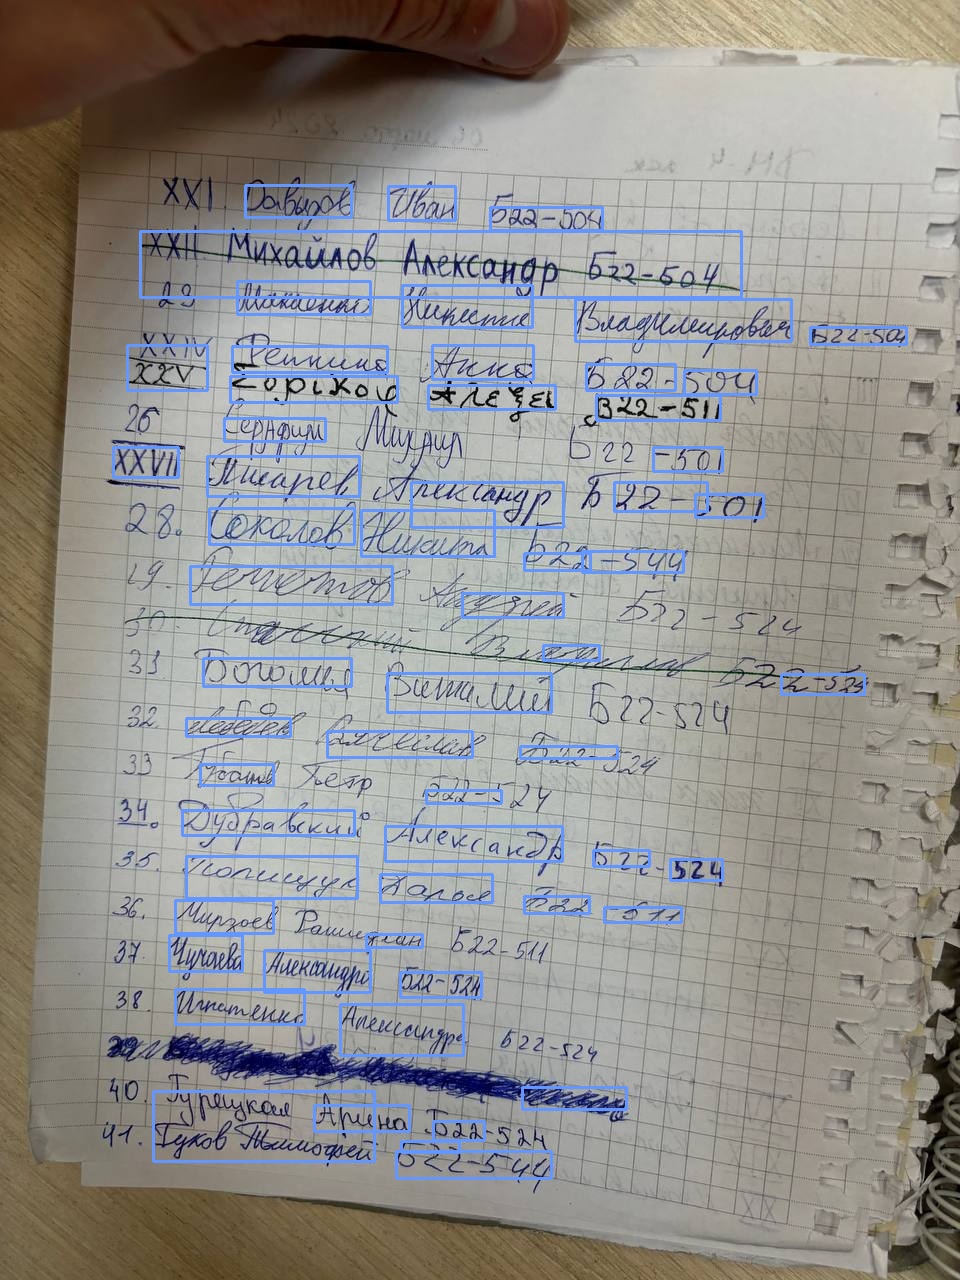 XXI. Давыдов Иван Б22-504
XXII Михайлов Александр Б22-504
23 Макаенко Никита Владимирович Б22-504
XXIV Репкина Анна Б22-504
XXV Горіков Алезеі Б22-511
26 Серафим Михаил Б22-501
XXVII Писарев Александр Б22-501
28. Соколов Никита Б22-544
29. Решетов Андрей Б22-524
30. Владислав Б22-524
31 Богомил Виталий Б22-524
32 Лебедев Вячеслав Б22-524
33 Губанов Петр Б22-524
34. Дубравский Александр Б22-524
35. Полищук Дарья Б22-511
36. Мирзоев Рашитхан Б22-511
37. Чучаева Александра Б22-524
38. Игнатенко Александра Б22-524
40. Турецкая Арина Б22-524
41. Гуков Тимофей Б22-544